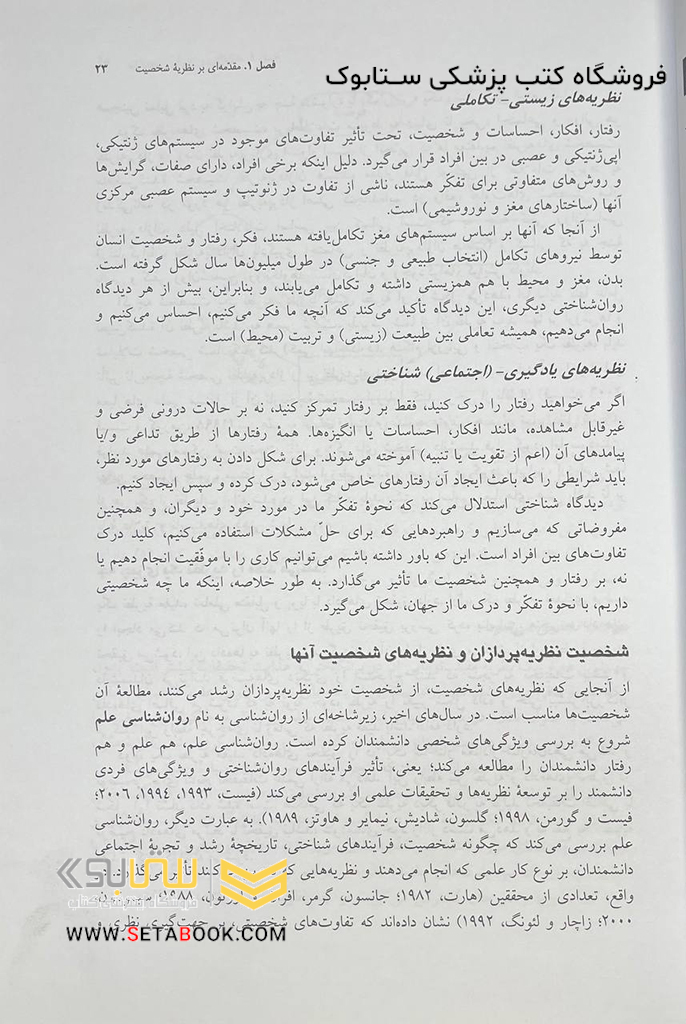 فصل ۱. مقدّمه‌ای بر نظریهٔ شخصیت ۲۳
فروشگاه کتب پزشکی ستابوک
نظریه‌های زیستی- تکاملی
رفتار، افکار، احساسات و شخصیت، تحت تأثیر تفاوت‌های موجود در سیستم‌های ژنتیکی،
اپی‌ژنتیکی و عصبی در بین افراد قرار می‌گیرد. دلیل اینکه برخی افراد، دارای صفات، گرایش‌ها
و روش‌های متفاوتی برای تفکّر هستند، ناشی از تفاوت در ژنوتیپ و سیستم عصبی مرکزی
آنها (ساختارهای مغز و نوروشیمی) است.
از آنجا که آنها بر اساس سیستم‌های مغز تکامل‌یافته هستند، فکر، رفتار و شخصیت انسان
توسط نیروهای تکامل (انتخاب طبیعی و جنسی) در طول میلیون‌ها سال شکل گرفته است.
بدن، مغز و محیط با هم همزیستی داشته و تکامل می‌یابند، و بنابراین، بیش از هر دیدگاه
روان‌شناختی دیگری، این دیدگاه تأکید می‌کند که آنچه ما فکر می‌کنیم، احساس می‌کنیم و
انجام می‌دهیم، همیشه تعاملی بین طبیعت (زیستی) و تربیت (محیط) است.
نظریه‌های یادگیری- (اجتماعی) شناختی
اگر می‌خواهید رفتار را درک کنید، فقط بر رفتار تمرکز کنید، نه بر حالات درونی فرضی و
غیرقابل مشاهده، مانند افکار، احساسات یا انگیزه‌ها. همهٔ رفتارها از طریق تداعی و/یا
پیامدهای آن (اعم از تقویت یا تنبیه) آموخته می‌شوند. برای شکل دادن به رفتارهای مورد نظر،
باید شرایطی را که باعث ایجاد آن رفتارهای خاص می‌شود، درک کرده و سپس ایجاد کنیم.
دیدگاه شناختی استدلال می‌کند که نحوهٔ تفکّر ما در مورد خود و دیگران، و همچنین
مفروضاتی که می‌سازیم و راهبردهایی که برای حلّ مشکلات استفاده می‌کنیم، کلید درک
تفاوت‌های بین افراد است. این که باور داشته باشیم می‌توانیم کاری را با موفّقیت انجام دهیم یا
نه، بر رفتار و همچنین شخصیت ما تأثیر می‌گذارد. به طور خلاصه، اینکه ما چه شخصیتی
داریم، با نحوهٔ تفکّر و درک ما از جهان، شکل می‌گیرد.
شخصیت نظریه‌پردازان و نظریه‌های شخصیت آنها
از آنجایی که نظریه‌های شخصیت، از شخصیت خود نظریه‌پردازان رشد می‌کنند، مطالعهٔ آن
شخصیت‌ها مناسب است. در سال‌های اخیر، زیرشاخه‌ای از روان‌شناسی به نام روان‌شناسی علم
شروع به بررسی ویژگی‌های شخصی دانشمندان کرده است. روان‌شناسی علم، هم علم و هم
رفتار دانشمندان را مطالعه می‌کند؛ یعنی، تأثیر فرآیندهای روان‌شناختی و ویژگی‌های فردی
دانشمند را بر توسعهٔ نظریه‌ها و تحقیقات علمی او بررسی می‌کند (فیست، ۱۹۹۳، ۱۹۹۴، ۲۰۰۶؛
فیست و گورمن، ۱۹۹۸؛ گلسون، شادیش، نیمایر و هاوتز، ۱۹۸۹). به عبارت دیگر، روان‌شناسی
علم بررسی می‌کند که چگونه شخصیت، فرآیندهای شناختی، تاریخچهٔ رشد و تجربهٔ اجتماعی
دانشمندان، بر نوع کار علمی که انجام می‌دهند و نظریه‌هایی که کنند، تأثیر می‌گذارد. در
واقع، تعدادی از محققین (هارت، ۱۹۸۲؛ جانسون، گرمر، ۱۹۸۸؛
۲۰۰۰؛ زاچار و لئونگ، ۱۹۹۲) نشان داده‌اند که تفاوت‌های شخصیتی بر جهت‌گیری نظری و
ستابوک
WWW.SETABOOK.COM